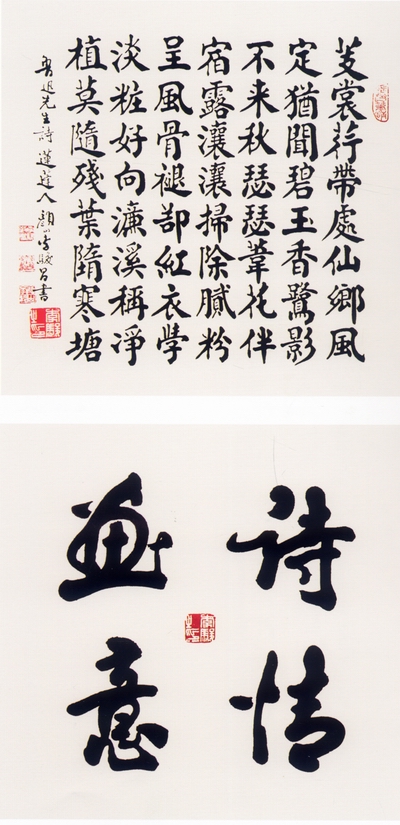 芰裳荇帶處仙鄉風
定猶聞碧玉香鷺影
不来秋瑟瑟葦花伴
宿露瀼瀼掃除膩粉
呈風骨褪郤紅衣學
淡粧好向濂溪稱淨
植莫隨殘葉墮寒塘
魯迅先生詩 蓮蓬人 書
詩情
畫意